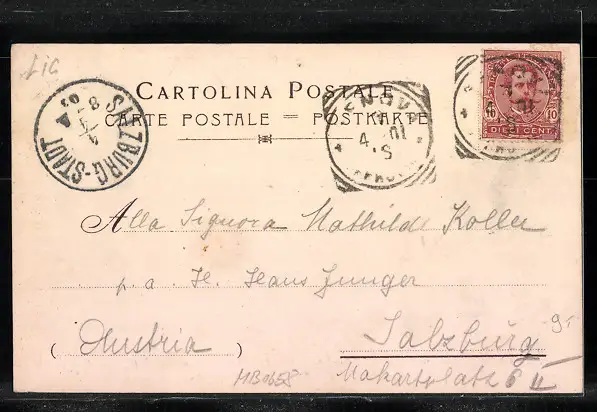 LIG
CARTOLINA POSTALE
CARTE POSTALE = POSTKARTE
SALZBURG-STADT
GENOVA
4
01
10
DIECI CENT.
Alla Signora Mathilde Koller
p. a. H. Hans Junger
(Austria) Salzburg
9-
Makartplatz 6 II
MB1658